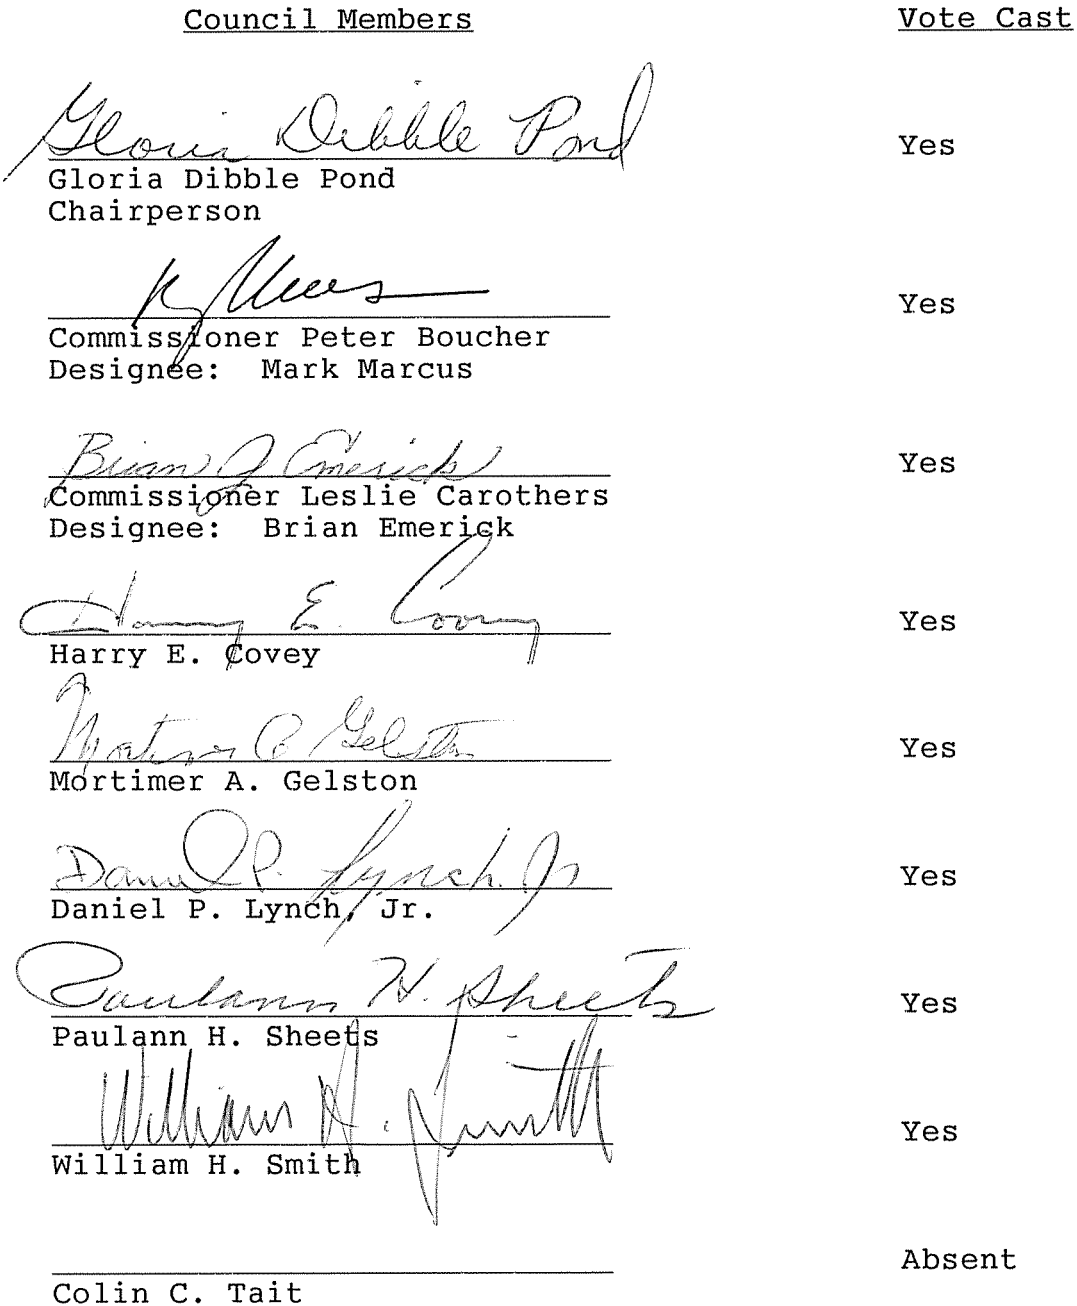 Council Members Vote Cast
Gloria Dibble Pond
Yes
Gloria Dibble Pond
Chairperson
Yes
Commissioner Peter Boucher
Designee: Mark Marcus
Brian J Emerick
Yes
Commissioner Leslie Carothers
Designee: Brian Emerick
Harry E. Covey
Yes
Harry E. Covey
Mortimer A Gelston
Yes
Mortimer A. Gelston
Daniel P. Lynch Jr
Yes
Daniel P. Lynch, Jr.
Paulann H. Sheets
Yes
Paulann H. Sheets
William H. Smith
Yes
William H. Smith
Absent
Colin C. Tait